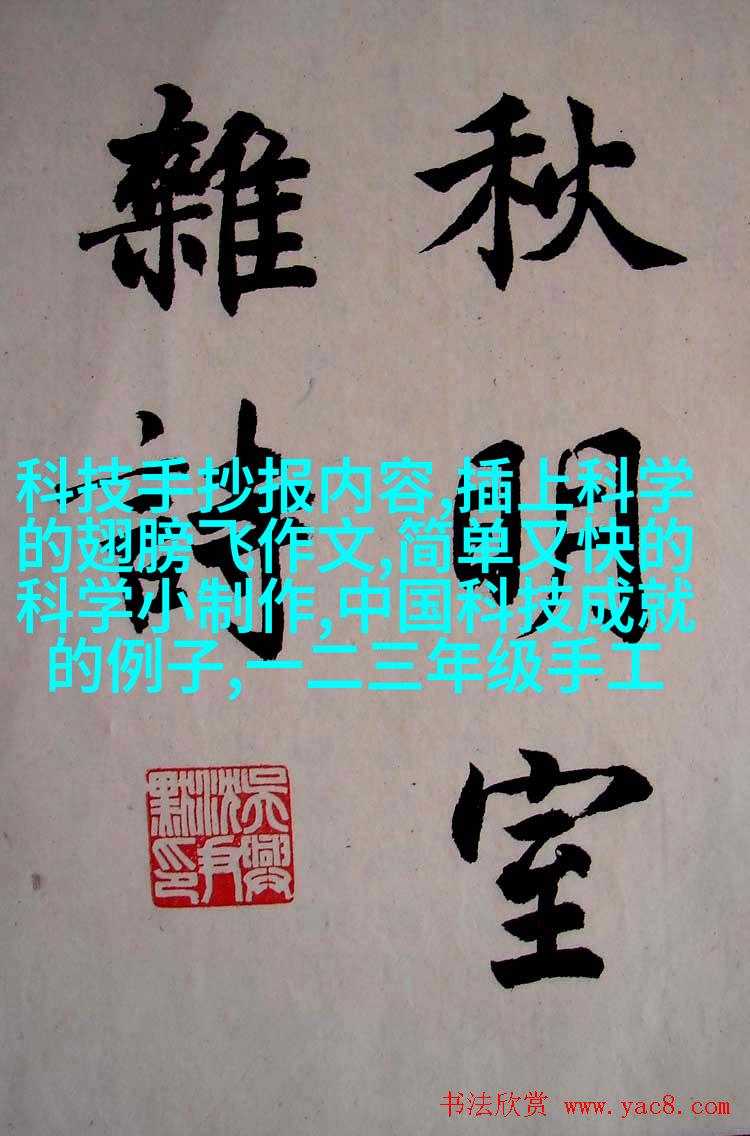 秋明室
雜詩
科技手抄报内容,插上科学
的翅膀飞作文,简单又快的
科学小制作,中国科技成就
的例子,一二三年级手工
吳興
沈尹
默印
书法欣赏 www.yac8.com